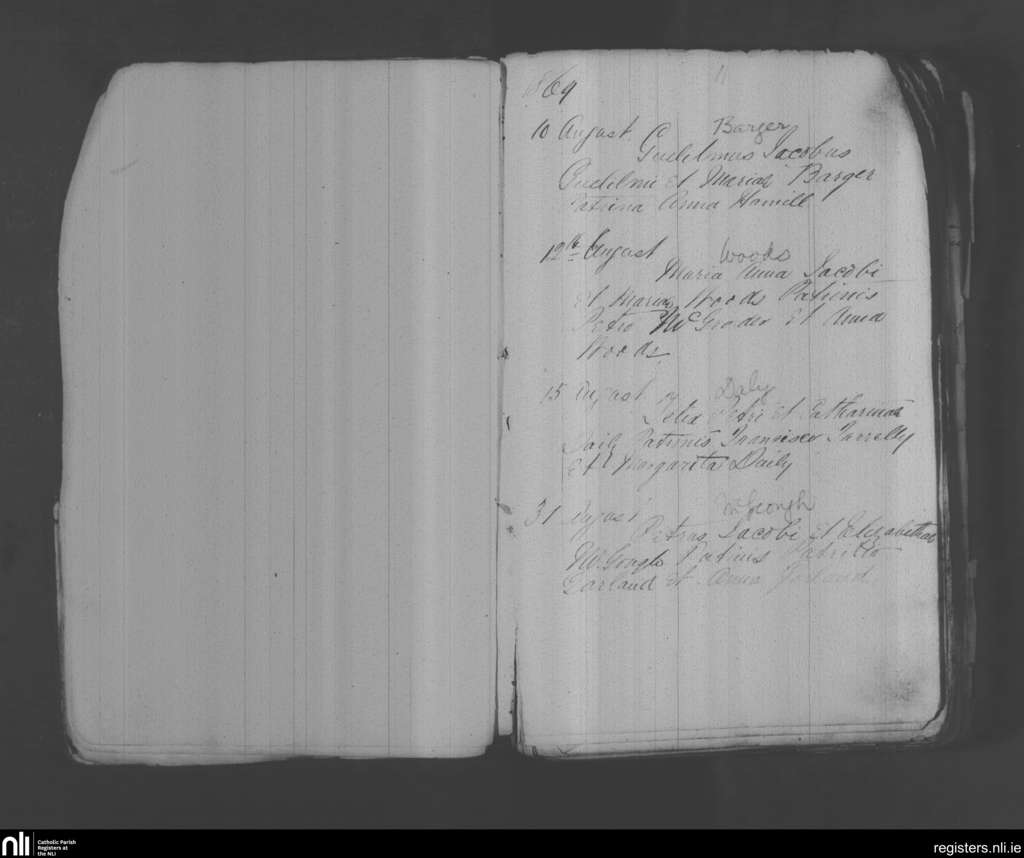 11
1869
10 August Barger
Gulielmus Jacobus
Gulielmi et Mariae Barger
Patrina Anna Hamill
12th August Woods
Maria Anna Jacobi
et Mariae Woods Patrinis
Petro McGrader et Anna
Woods
15 August Daly
Felix Petri et Catharinae
Daily Patrinis Francisco Farrelly
Et Margarita Daily
31 August McGeough
Petrus Jacobi et Elizabethae
McGeogh Patrinis Patritio
Garland et Anna Garland
nli
Catholic Parish
Registers at
the NLI
registers.nli.ie